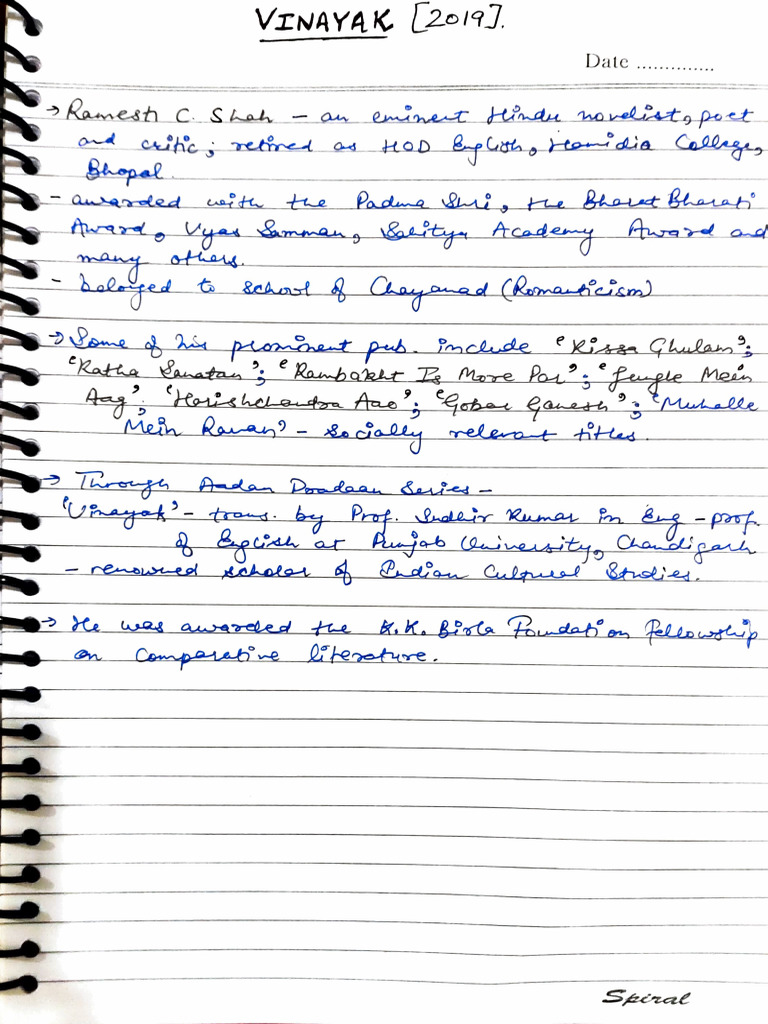 VINAYAK [2019].
Date ..............
→ Ramesh C. Shah – an eminent Hindu novelist, poet
and critic; retired as HOD English, Hamidia College,
Bhopal.
- awarded with the Padma Shri, the Bharat Bharati
Award, Vyas Samman, Sahitya Academy Award and
many others.
- belonged to school of Chayavad (Romanticism)
→ Some of his prominent pub. include 'Kissa Ghulam';
'Katha Sanatan'; 'Rambakht Is More Par'; 'Jungle Mein
Aag'. 'Harishchandra Aao'; 'Gobar Ganesh'; 'Muhalle
Mein Ravan' – socially relevant titles.
→ Through Aadan Pradaan Series –
'Vinayak' – trans. by Prof. Sudhir Kumar in Eng – prof.
of English at Punjab University, Chandigarh
– renowned scholar of Indian Cultural Studies.
→ He was awarded the K.K. Birla Foundation Fellowship
on Comparative literature.
Spiral